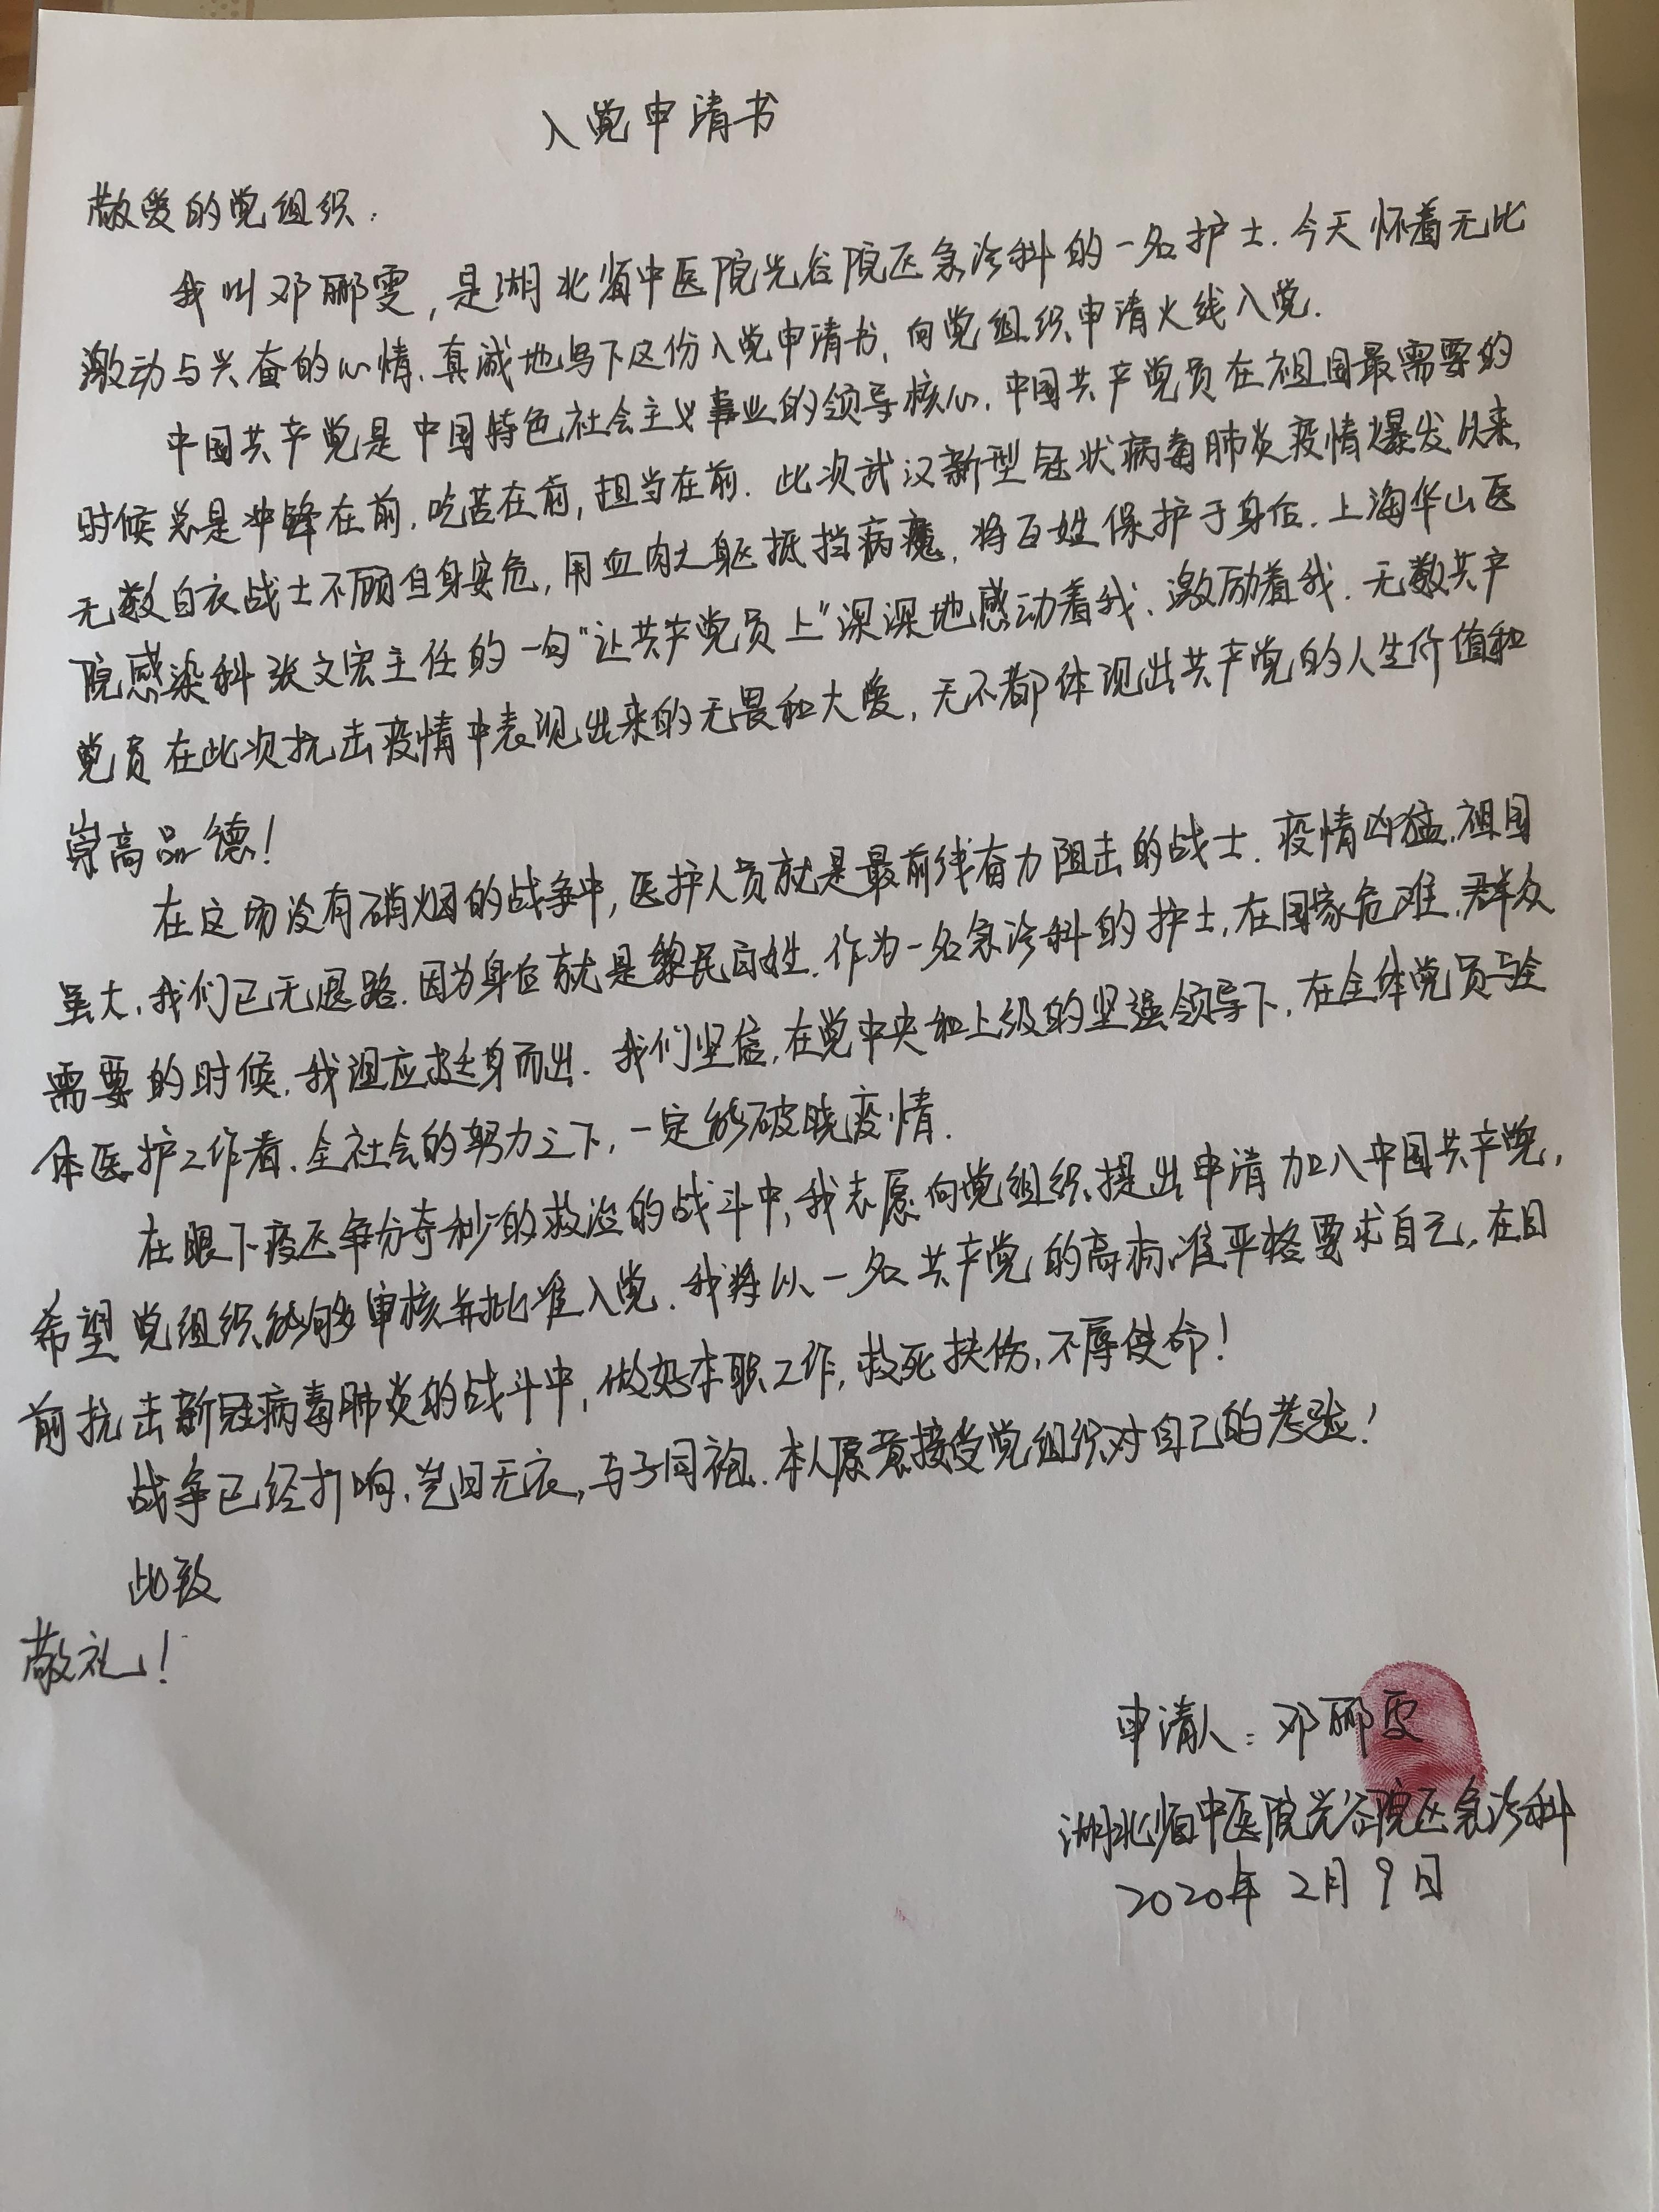 入党申请书
敬爱的党组织:
我叫邓郦雯,是湖北省中医院光谷院区急诊科的一名护士.今天怀着无比
激动与兴奋的心情,真诚地写下这份入党申请书,向党组织申请火线入党.
中国共产党是中国特色社会主义事业的领导核心,中国共产党员在祖国最需要的
时候总是冲锋在前,吃苦在前,担当在前.此次武汉新型冠状病毒肺炎疫情爆发以来,
无数白衣战士不顾自身安危,用血肉之躯抵挡病魔,将百姓保护于身后.上海华山医
院感染科张文宏主任的一句"让共产党员上"深深地感动着我、激励着我.无数共产
党员在此次抗击疫情中表现出来的无畏和大爱,无不都体现出共产党的人生价值和
崇高品德!
在这场没有硝烟的战争中,医护人员就是最前线奋力阻击的战士.疫情凶猛,祖国
虽大,我们已无退路.因为身后就是黎民百姓.作为一名急诊科的护士,在国家危难、群众
需要的时候,我理应挺身而出.我们坚信,在党中央和上级的坚强领导下,在全体党员与全
体医护工作者、全社会的努力之下,一定能破晓疫情.
在眼下疫区争分夺秒的救治的战斗中,我志愿向党组织提出申请加入中国共产党,
希望党组织能够审核并批准入党.我将以一名共产党的高标准严格要求自己,在目
前抗击新冠病毒肺炎的战斗中,做好本职工作,救死扶伤,不辱使命!
战争已经打响,岂曰无衣,与子同袍.本人愿意接受党组织对自己的考验!
此致
敬礼!
申请人:邓郦雯
湖北省中医院光谷院区急诊科
2020年2月9日